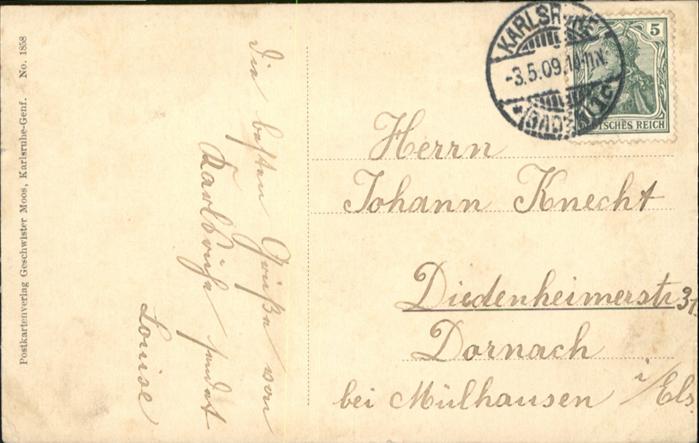 Postkartenverlag Geschwister Moos, Karlsruhe-Genf. No. 1858
die besten Grüße von
Karlsruhe sendet
Louise
KARLSRUHE
-3.5.09.
(BADEN)
5
DEUTSCHES REICH
Herrn
Johann Knecht
Diedenheimerstr
Dornach
bei Mülhausen i/Els.